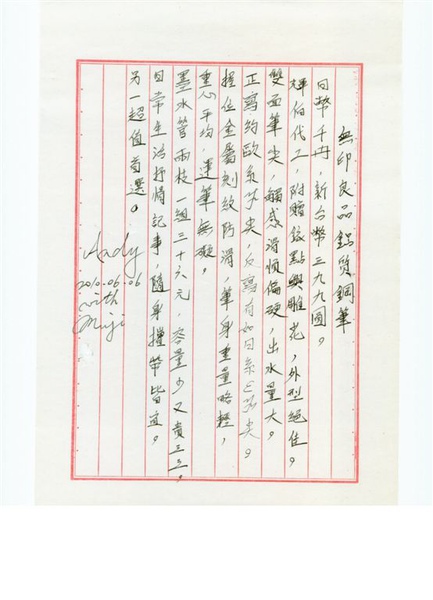 無印良品鋁質鋼筆
日幣千冊，新台幣三九九圓。
輝伯代工，附贈銥點與雕花，外型絕佳。
雙面筆尖，觸感滑順偏硬，出水量大。
正寫約歐系F尖，反寫有如日系EF尖。
握位金屬刻紋防滑，筆身重量略輕，
重心平均，運筆無礙。
墨水管兩枝一組三十六元，容量少又貴三三。
日常生活抒情記事，隨身攜帶皆宜。
另一超值首選。
Andy
2010.06.06
with
Muji